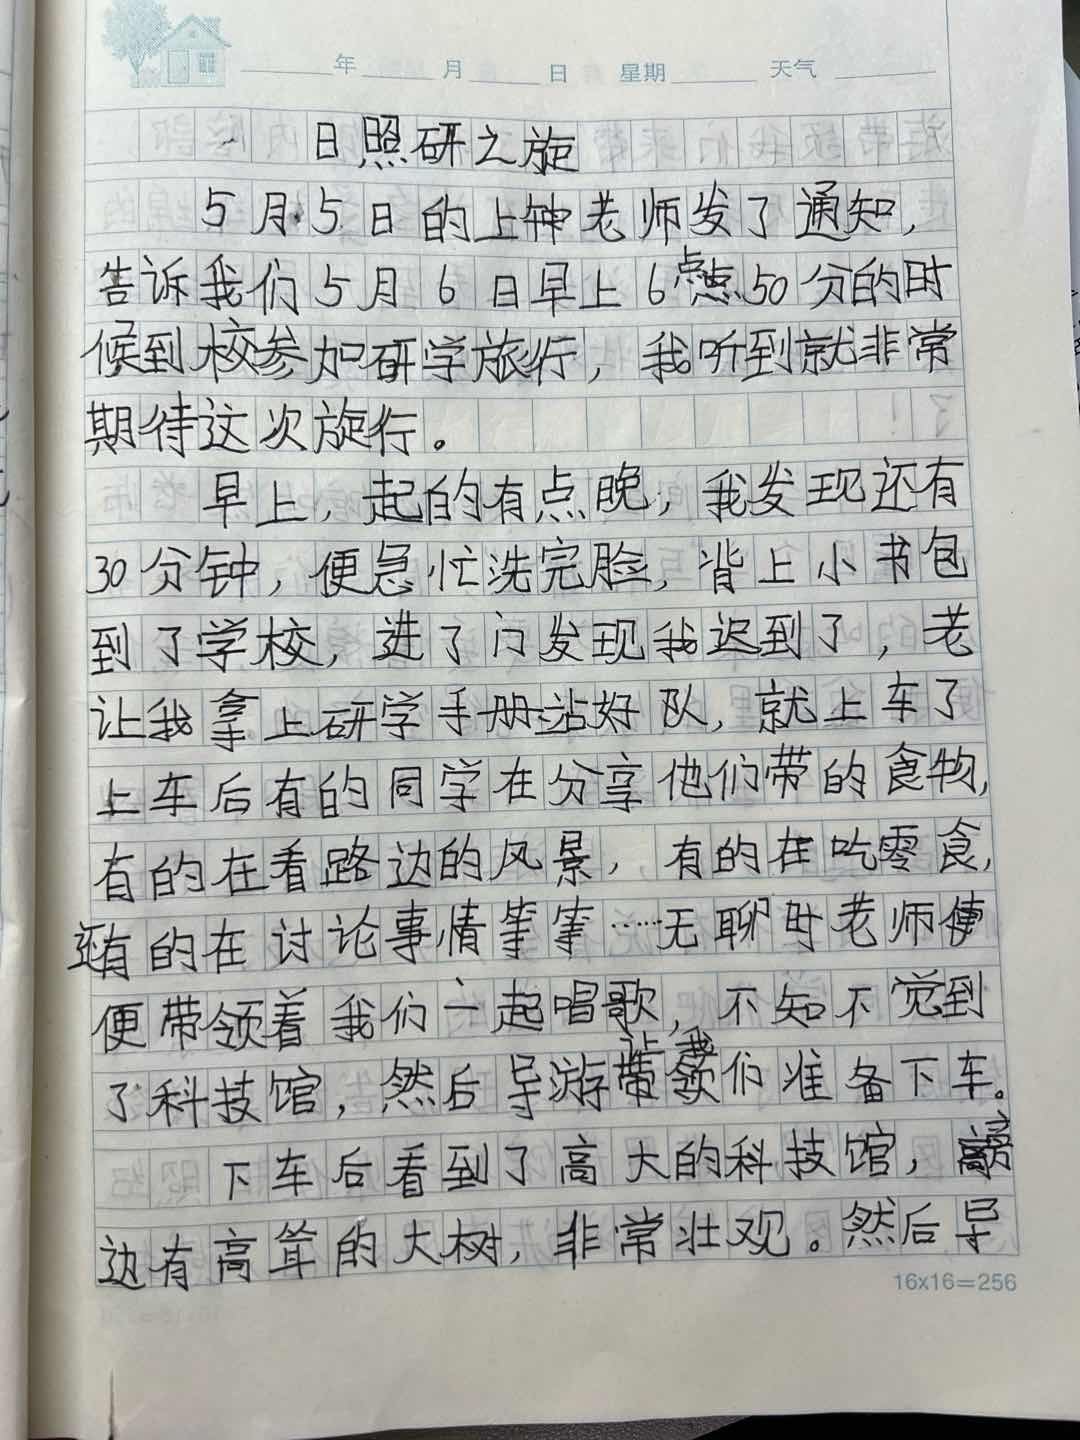 年 月 日 星期 天气
日照研之旋
5月5日的上钟老师发了通知，
告诉我们5月6日早上6点50分的时
候到校参加研学旅行，我听到就非常
期待这次旋行。
早上，起的有点晚，我发现还有
30分钟，便急忙洗完脸，背上小书包
到了学校，进了门发现我迟到了，老
让我拿上研学手册站好队，就上车了
上车后有的同学在分享他们带的食物，
有的在看路边的风景，有的在吃零食，
还有的在讨论事情等等……无聊时老师便
便带领着我们一起唱歌，不知不觉到
了科技馆，然后导游让我们准备下车。
下车后看到了高大的科技馆，旁
边有高耸的大树，非常壮观。然后导
16x16=256